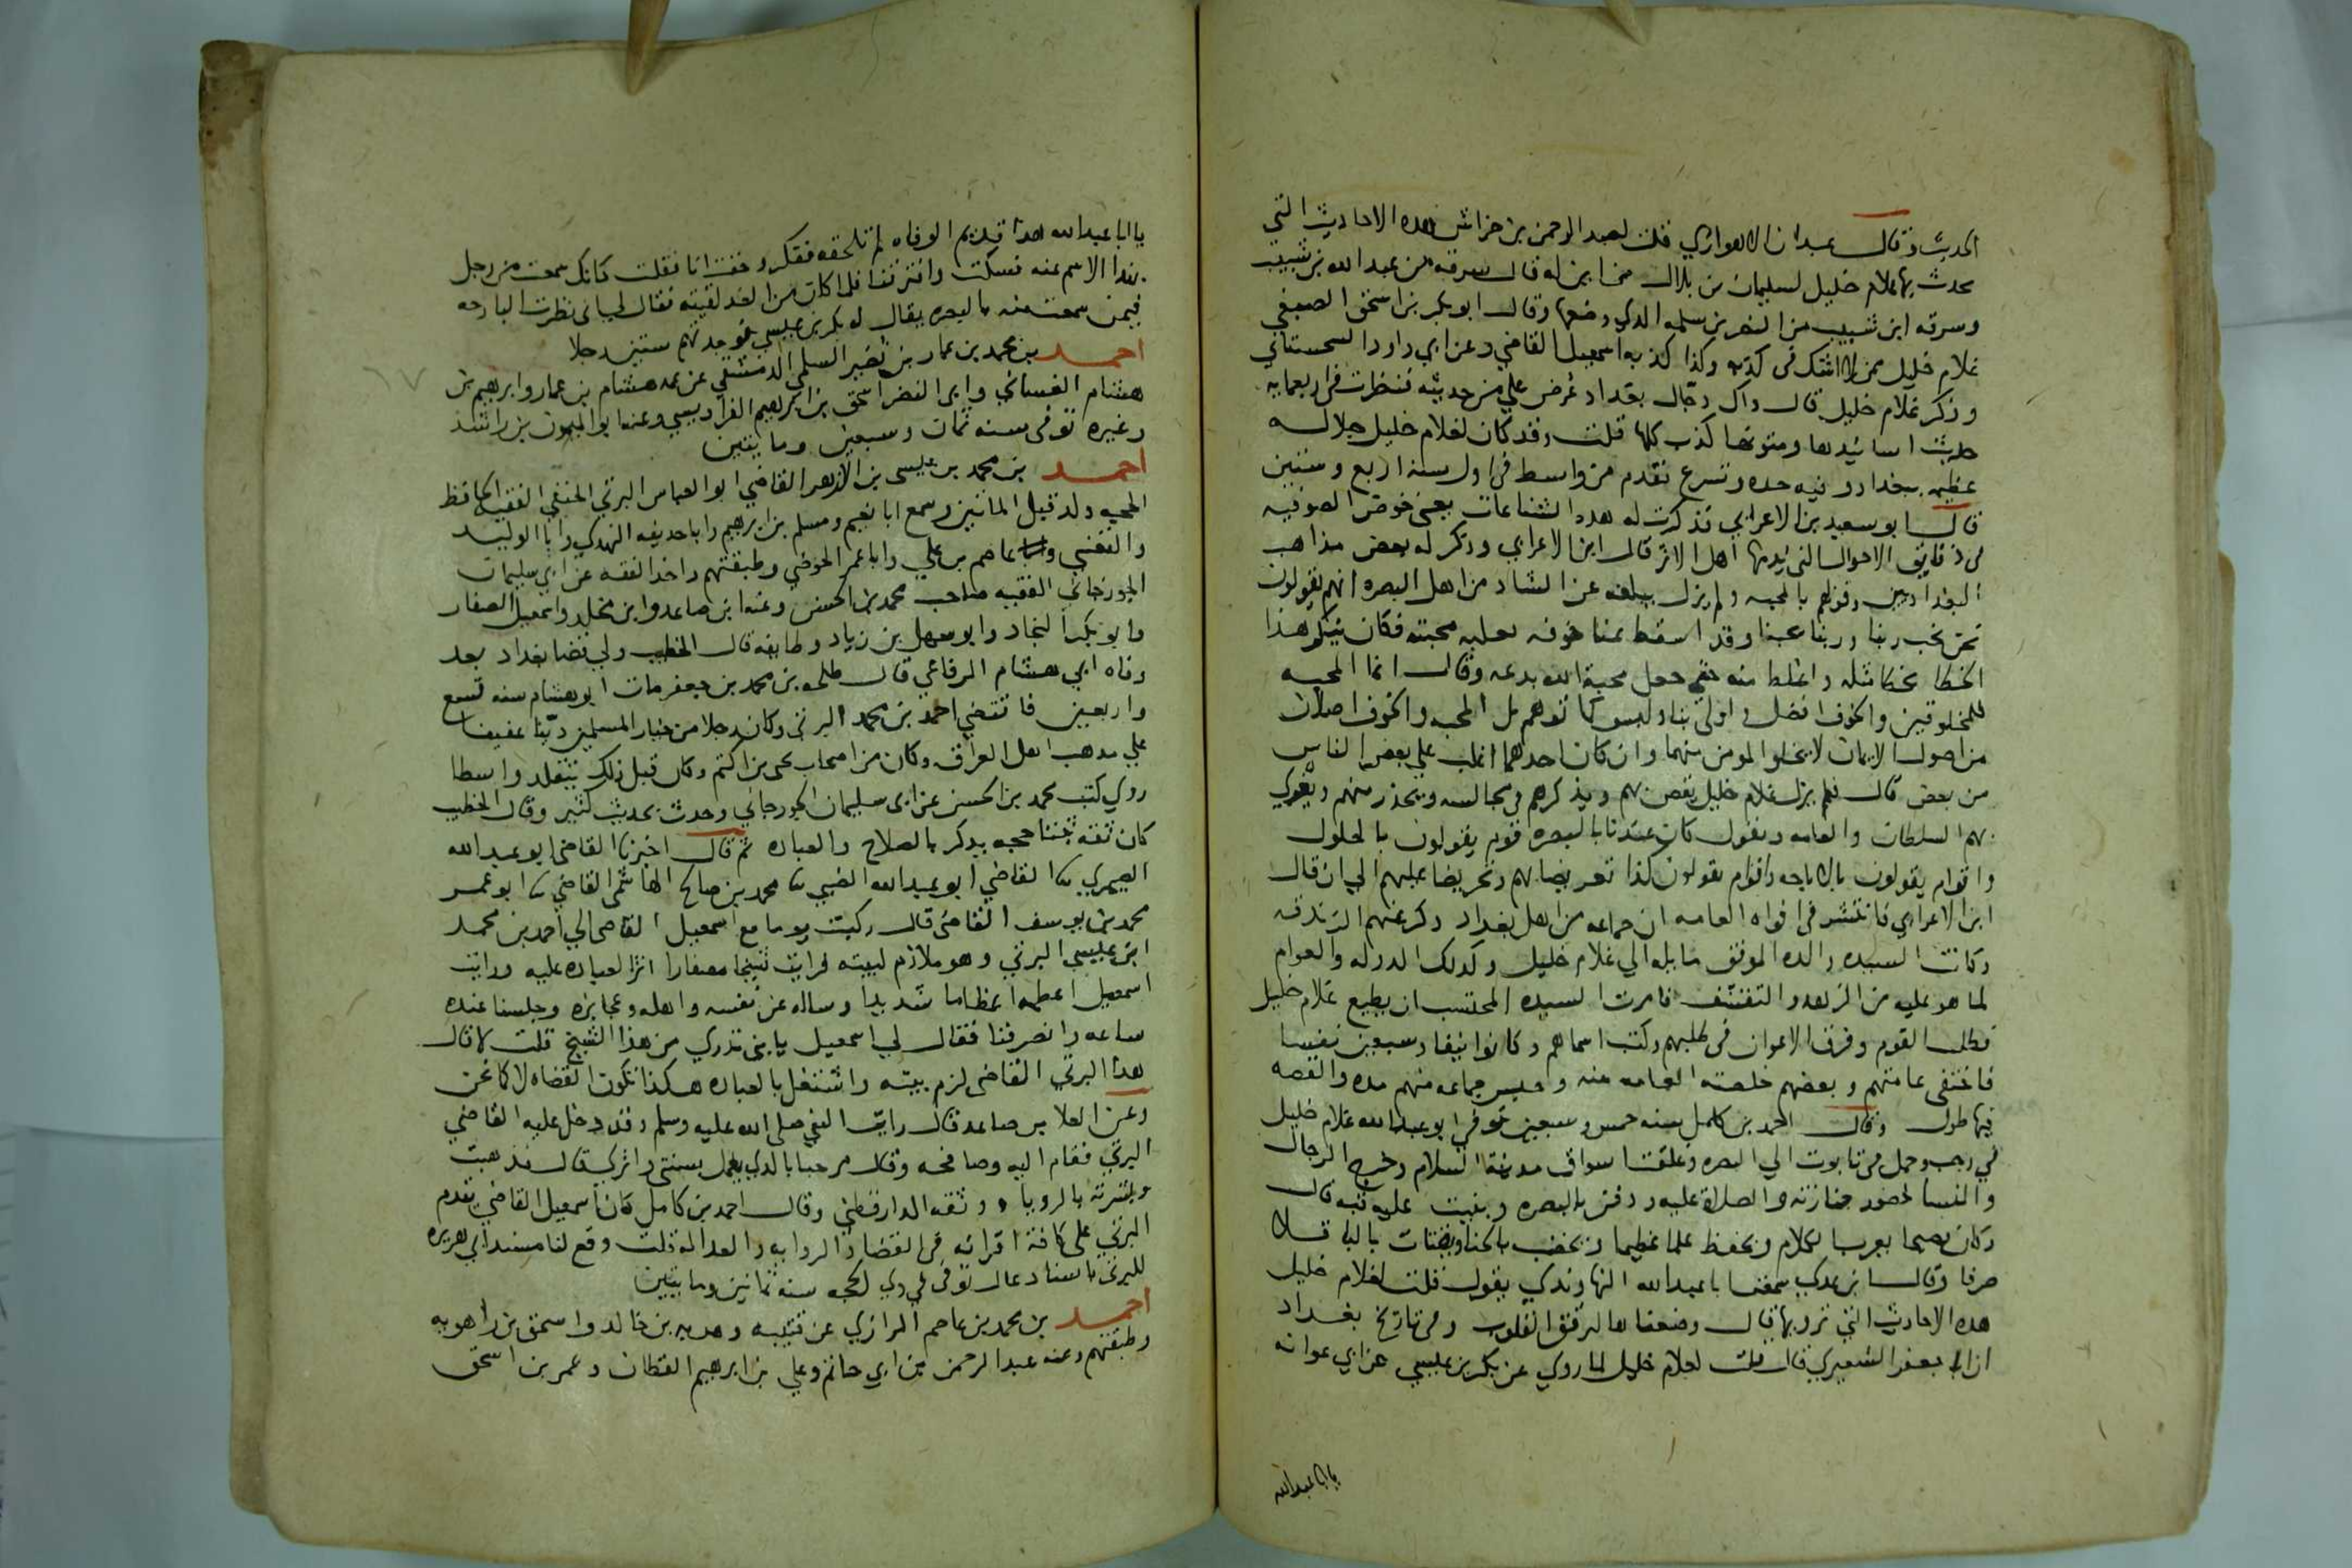 الحديث وقال عبدان الاهوازي قلت لعبد الرحمن بن خراش هذه الاحاديث التي
يحدث بها غلام خليل لسليمان بن بلال من اين له قال سرقه من عبد الله بن شبيب
وسرقه ابن شبيب من النضر بن سلمه الذي وضعها وقال ابو بكر بن اسحق الصبغي
غلام خليل ممن لا اشك في كذبه وكذا كذبه اسمعيل القاضي وعن ابي داود السجستاني
وذكر غلام خليل قال ذاك دجال بغداد عرض علي من حديثه فنظرت في اربعمايه
حديث اسانيدها ومتونها كذب كلها قلت وقد كان لغلام خليل جلاله
عظيمه ببغداد وفيه حده وتسرع فقدم من واسط في اول سنه اربع وستين
قال ابو سعيد بن الاعرابي فذكرت له هذه الشناعات يعني خوض الصوفيه
في دقايق الاحوال التي يذمها اهل الاثر قال ابن الاعرابي وذكر له بعض مذاهب
البغداديين وقولهم بالمحبه ولم يزل يبلغه عن الشاذ من اهل البصره انهم يقولون
نحن نحب ربنا وربنا يحبنا وقد اسقط عنا خوفه بغلبه محبته فكان ينكر هذا
الخطا بخطا مثله واغلظ منه حتى جعل محبة الله بدعه وقال انما المحبه
للمخلوقين والخوف افضل واولى بنا وليس كما توهم بل المحبه والخوف اصلان
من اصول الايمان لا يخلوا المومن منهما وان كان احدهما اغلب علي بعض الناس
من بعض قال فلم يزل غلام خليل يقص بهم ويذكرهم في مجالسه ويحذر منهم ويغري
بهم السلطان والعامه ويقول كان عندنا بالبصره قوم يقولون بالحلول
واقوام يقولون بالاباحه واقوام يقولون كذا تعريضا بهم وتحريضا عليهم الي ان قال
ابن الاعرابي فانتشر في افواه العامه ان جماعه من اهل بغداد ذكر عنهم الزندقه
وكانت السيده والده الموفق مايله الي غلام خليل وكذلك الدوله والعوام
لما هو عليه من الزهد والتقشف فامرت السيده المحتسب ان يطيع غلام خليل
فطلب القوم وفرق الاعوان في طلبهم وكتب اسماهم وكانوا نيفا وسبعين نفسا
فاختفى عامتهم وبعضهم خلصته العامه منه وحبس جماعه منهم مده والقصه
فيها طول وقال احمد بن كامل سنه خمس وسبعين توفي ابو عبد الله غلام خليل
في رجب وحمل في تابوت الي البصره وغلقت اسواق مدينة السلام وخرج الرجال
والنسا لحضور جنازته والصلاة عليه ودفن بالبصره وبنيت عليه قبه قال
وكان فصيحا يعرب الكلام ويحفظ علما عظيما ويخضب بالحنا ويقتات بالباقلا
صرفا وقال ابن عدي سمعت ابا عبد الله النهاوندي يقول قلت لغلام خليل
هذه الاحاديث التي ترويها قال وضعناها لنرقق القلوب وفي تاريخ بغداد
ان ابا جعفر الشعيري قال قلت لغلام خليل لما روي عن بكر بن عيسي عن ابي عوانه
يا ابا عبد الله
يا ابا عبد الله هذا قديم الوفاه لم تلحقه ففكر وخفت انا فقلت كانك سمعت من رجل
بهذا الاسم عنه فسكت وافترقنا فلما كان من الغد لقيته فقال لي اني نظرت البارحه
فيمن سمعت منه بالبصره يقال له بكر بن عيسي فوجدتهم ستين رجلا
احمد بن محمد بن عمار بن نصير السلمي الدمشقي عن عمه هشام بن عمار وابرهيم بن
هشام الغساني وابي النضر اسحق بن ابرهيم الفراديسي وعنه ابو الميمون بن راشد
وغيره توفى سنه ثمان وسبعين ومايتين
احمد بن محمد بن عيسى بن الازهر القاضي ابو العباس البرتي الحنفي الفقيه الحافظ
المحبه ولد قبل المائتين وسمع ابا نعيم ومسلم بن ابرهيم وابا حذيفه النهدي وابا الوليد
والقعنبي وعاصم بن علي وابا عمر الحوضي وطبقتهم واخذ الفقه عن ابي سليمان
الجوزجاني الفقيه صاحب محمد بن الحسن وعنه ابن صاعد وابن مخلد واسمعيل الصفار
وابو بكر النجاد وابو سهل بن زياد وطايفه قال الخطيب ولي قضا بغداد بعد
وفاه ابي هشام الرفاعي قال طلحه بن محمد بن جعفر مات ابو هشام سنه تسع
واربعين فاستقضي احمد بن محمد البرتي وكان رجلا من خيار المسلمين دينا عفيفا
علي مذهب اهل العراق وكان من اصحاب يحى بن اكثم وكان قبل ذلك يتقلد واسطا
روي كتب محمد بن الحسن عن ابي سليمان الجوزجاني وحدث بحديث كثير وقال الخطيب
كان ثقه ثبتا حجه يذكر بالصلاح والعباده ثم قال اخبرنا القاضي ابو عبد الله
الصيمري ثنا القاضي ابو عبد الله الضبي ثنا محمد بن صالح الهاشمي القاضي ثنا ابو عمر
محمد بن يوسف القاضي قال ركبت يوما مع اسمعيل القاضي الي احمد بن محمد
ابن عيسي البرتي وهو ملازم لبيته فرايت شيخا مصفارا اثر العباده عليه ورايت
اسمعيل اعظمه اعظاما شديدا وساله عن نفسه واهله وعجايزه وجلسنا عنده
ساعه وانصرفنا فقال لي اسمعيل يا بني تدري من هذا الشيخ قلت لا قال
هذا البرتي القاضي لزم بيته واشتغل بالعباده هكذا تكون القضاه لا كما نحن
وعن العلا بن صاعد قال رايت النبي صلى الله عليه وسلم وقد دخل عليه القاضي
البرتي فقام اليه وصافحه وقال مرحبا بالذي يعمل بسنتي واثري قال فذهبت
وبشرته بالرويا ووثقه الدارقطني وقال احمد بن كامل كان اسمعيل القاضي يقدم
البرتي على كافة اقرانه في القضا والروايه والعداله قلت وقع لنا مسند ابي هريره
للبرتي باسناد عال توفى في ذي الحجه سنه ثمانين ومايتين
احمد بن محمد بن عاصم الرازي عن قتيبه وهدبه بن خالد واسحق بن راهويه
وطبقتهم وعنه عبد الرحمن بن ابي حاتم وعلي بن ابرهيم القطان وعمر بن اسحق